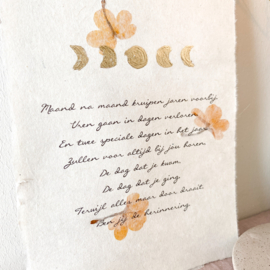 Maand na maand kruipen jaren voorbij
Uren gaan in dagen verloren
En twee speciale dagen in het jaar
Zullen voor altijd bij jou horen
De dag dat je kwam,
De dag dat je ging,
Terwijl alles maar door draait
Ben jij de herinnering.